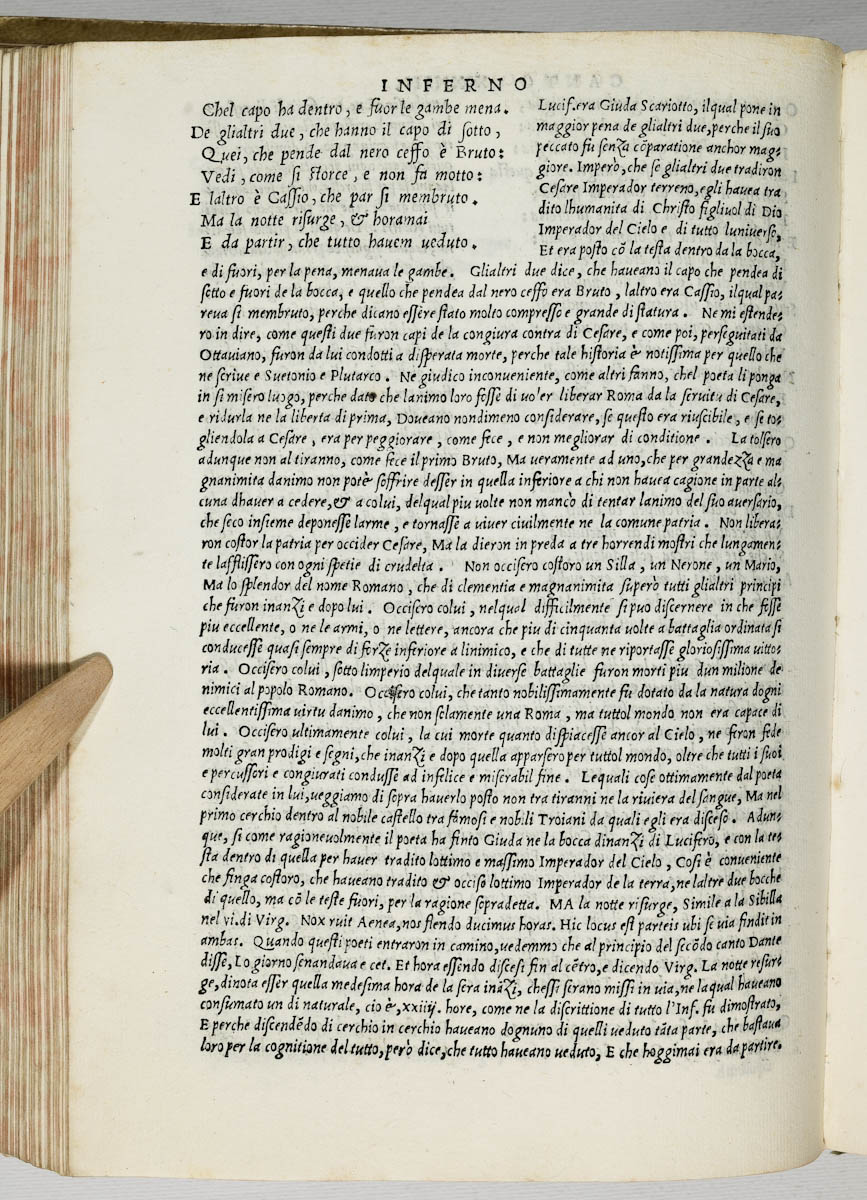 INFERNO
Chel capo ha dentro, e fuor le gambe mena.
De glialtri due, che hanno il capo di sotto,
Quei, che pende dal nero ceffo è Bruto:
Vedi, come si storce, e non fa motto:
E laltro è Cassio, che par si membruto.
Ma la notte risurge, & horamai
E da partir, che tutto hauem ueduto.
Lucif.era Giuda Scariotto, ilqual pone in
maggior pena de glialtri due, perche il suo
peccato fu senza cōparatione anchor mag-
giore. Imperò, che se glialtri due tradiron
Cesare Imperador terreno, egli hauea tra
dito lhumanita di Christo figliuol di Dio
Imperador del Cielo e di tutto luniuerso,
Et era posto cō la testa dentro da la bocca,
e di fuori, per la pena, menaua le gambe. Glialtri due dice, che haueano il capo che pendea di
sotto e fuori de la bocca, e quello che pendea dal nero ceffo era Bruto, laltro era Cassio, ilqual pa-
reua si membruto, perche dicano essere stato molto compresso e grande di statura. Ne mi estende-
ro in dire, come questi due furon capi de la congiura contra di Cesare, e come poi, perseguitati da
Ottauiano, furon da lui condotti a disperata morte, perche tale historia è notissima per quello che
ne scriue e Suetonio e Plutarco. Ne giudico inconueniente, come altri fanno, chel poeta li ponga
in si misero luogo, perche dato che lanimo loro fosse di uo'er liberar Roma da la seruitu di Cesare,
e ridurla ne la liberta di prima, Doueano nondimeno considerare, se questo era riuscibile, e se to-
gliendola a Cesare, era per peggiorare, come fece, e non megliorar di conditione. La tolsero
adunque non al tiranno, come fece il primo Bruto, Ma ueramente ad uno, che per grandezza e ma
gnanimita danimo non potè soffrire desser in quella inferiore a chi non hauea cagione in parte al-
cuna dhauer a cedere, & a colui, delqual piu uolte non mancò di tentar lanimo del suo auersario,
che seco insieme deponesse larme, e tornasse a uiuer ciuilmente ne la comune patria. Non libera-
ron costor la patria per occider Cesare, Ma la dieron in preda a tre horrendi mostri che lungamen-
te lafflissero con ogni spetie di crudelta. Non occisero costoro un Silla, un Nerone, un Mario,
Ma lo splendor del nome Romano, che di clementia e magnanimita superò tutti glialtri principi
che furon inanzi e dopo lui. Occisero colui, nelqual difficilmente si puo discernere in che fosse
piu eccellente, o ne le armi, o ne lettere, ancora che piu di cinquanta uolte a battaglia ordinata si
conducesse quasi sempre di forze inferiore a linimico, e che di tutte ne riportasse gloriosissima uitto-
ria. Occisero colui, sotto limperio delquale in diuerse battaglie furon morti piu dun milione de
nimici al popolo Romano. Occisero colui, che tanto nobilissimamente fu dotato da la natura dogni
eccellentissima uirtu danimo, che non solamente una Roma, ma tuttol mondo non era capace di
lui. Occisero ultimamente colui, la cui morte quanto dispiacesse ancor al Cielo, ne feron fede
molti gran prodigi e segni, che inanzi e dopo quella apparsero per tuttol mondo, oltre che tutti i suoi
e percussori e congiurati condusse ad infelice e miserabil fine. Lequali cose ottimamente dal poeta
considerate in lui, ueggiamo di sopra hauerlo posto non tra tiranni ne la riuiera del sangue, Ma nel
primo cerchio dentro al nobile castello tra famosi e nobili Troiani da quali egli era disceso. Adun-
que, si come ragioneuolmente il poeta ha finto Giuda ne la bocca dinanzi di Lucifero, e con la te-
sta dentro di quella per hauer tradito lottimo e massimo Imperador del Cielo, Cosi è conueniente
che finga costoro, che haueano tradito & occiso lottimo Imperador de la terra, ne laltre due bocche
di quello, ma cō le teste fuori, per la ragione sopradetta. MA la notte risurge, Simile a la Sibilla
nel vi. di Virg. Nox ruit Aenea, nos flendo ducimus horas. Hic locus est parteis ubi se uia findit in
ambas. Quando questi poeti entraron in camino, uedemmo che al principio del secōdo canto Dante
disse, Lo giorno senandaua e cet. Et hora essendo discesi fin al cētro, e dicendo Virg. La notte resur-
ge, dinota esser quella medesima hora de la sera ināzi, chessi serano missi in uia, ne laqual haueano
consumato un di naturale, cio è, xxiiij. hore, come ne la discrittione di tutto l'Inf. fu dimostrato,
E perche discendēdo di cerchio in cerchio haueano dognuno di quelli ueduto tāta parte, che bastaua
loro per la cognitione del tutto, però dice, che tutto haueano ueduto, E che hoggimai era da partire.